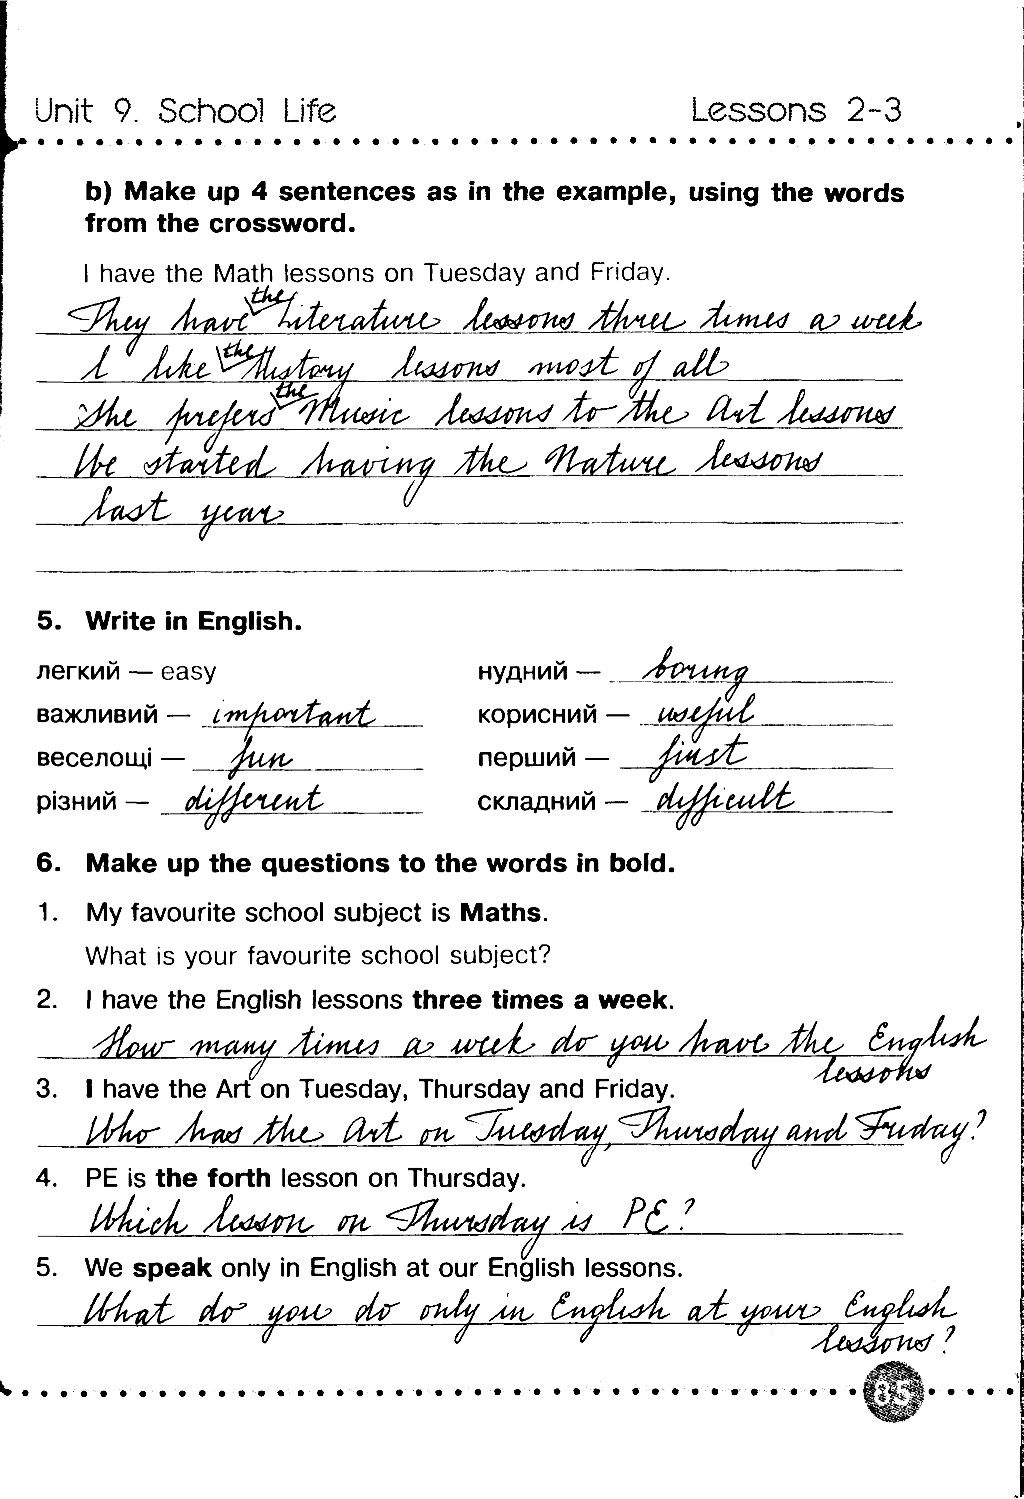 Unit 9. School Life Lessons 2-3
b) Make up 4 sentences as in the example, using the words
from the crossword.
I have the Math lessons on Tuesday and Friday.
They have the Literature lessons three times a week
I like the History lessons most of all
She prefers the Music lessons to the Art lessons
We started having the Nature lessons
last year
5. Write in English.
легкий — easy нудний — boring
важливий — important корисний — useful
веселощі — fun перший — first
різний — different складний — difficult
6. Make up the questions to the words in bold.
1. My favourite school subject is Maths.
What is your favourite school subject?
2. I have the English lessons three times a week.
How many times a week do you have the English
lessons
3. I have the Art on Tuesday, Thursday and Friday.
Who has the Art on Tuesday, Thursday and Friday?
4. PE is the forth lesson on Thursday.
Which lesson on Thursday is PE?
5. We speak only in English at our English lessons.
What do you do only in English at your English
lessons?
85